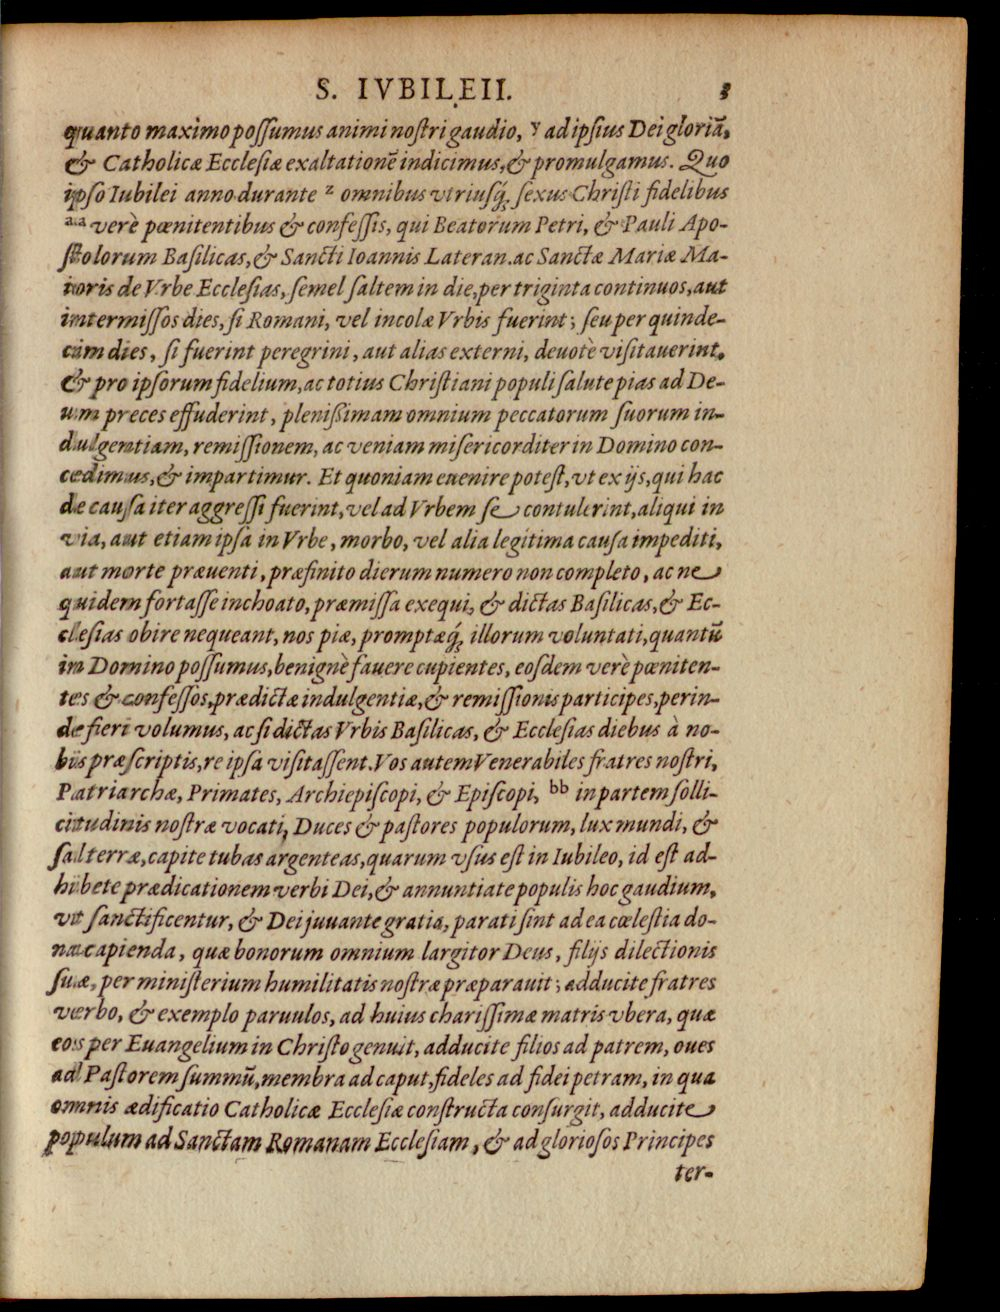 S. IVBILEII. 3
quanto maximo poſſumus animi noſtri gaudio, y ad ipſius Dei gloriā,
& Catholicæ Eccleſiæ exaltationē indicimus, & promulgamus. Quo
ipſo Iubilei anno durante z omnibus vtriuſq́; ſexus Chriſti fidelibus
aa verè pœnitentibus & confeſſis, qui Beatorum Petri, & Pauli Apo-
ſtolorum Baſilicas, & Sancti Ioannis Lateran. ac Sanctæ Mariæ Ma-
ioris de Vrbe Eccleſias, ſemel ſaltem in die, per triginta continuos, aut
intermiſſos dies, ſi Romani, vel incolæ Vrbis fuerint; ſeu per quinde-
cim dies, ſi fuerint peregrini, aut alias externi, deuotè viſitauerint,
& pro ipſorum fidelium, ac totius Chriſtiani populi ſalute pias ad De-
um preces effuderint, plenißimam omnium peccatorum ſuorum in-
dulgentiam, remiſſionem, ac veniam miſericorditer in Domino con-
cedimus, & impartimur. Et quoniam euenire poteſt, vt ex ijs, qui hac
de cauſa iter aggreſſi fuerint, vel ad Vrbem ſe contulerint, aliqui in
via, aut etiam ipſa in Vrbe, morbo, vel alia legitima cauſa impediti,
aut morte præuenti, præfinito dierum numero non completo, ac ne
quidem fortaſſe inchoato, præmiſſa exequi, & dictas Baſilicas, & Ec-
cleſias obire nequeant, nos piæ, promptæq́; illorum voluntati, quantū
in Domino poſſumus, benignè fauere cupientes, eoſdem verè pœniten-
tes & confeſſos, prædictæ indulgentiæ, & remiſſionis participes, perin-
de fieri volumus, ac ſi dictas Vrbis Baſilicas, & Eccleſias diebus à no-
bis præſcriptis, re ipſa viſitaſſent. Vos autem Venerabiles fratres noſtri,
Patriarchæ, Primates, Archiepiſcopi, & Epiſcopi, bb in partem ſolli-
citudinis noſtræ vocati, Duces & paſtores populorum, lux mundi, &
ſal terræ, capite tubas argenteas, quarum vſus eſt in Iubileo, id eſt ad-
hibete prædicationem verbi Dei, & annuntiate populis hoc gaudium,
vt ſanctificentur, & Dei juuante gratia, parati ſint ad ea cœleſtia do-
na capienda, quæ bonorum omnium largitor Deus, filijs dilectionis
ſuæ, per miniſterium humilitatis noſtræ præparauit; adducite fratres
verbo, & exemplo paruulos, ad huius chariſſimæ matris vbera, quæ
eos per Euangelium in Chriſto genuit, adducite filios ad patrem, oues
ad Paſtorem ſummū, membra ad caput, fideles ad fidei petram, in qua
omnis ædificatio Catholicæ Eccleſiæ conſtructa conſurgit, adducite
populum ad Sanctam Romanam Eccleſiam, & ad glorioſos Principes
ter-